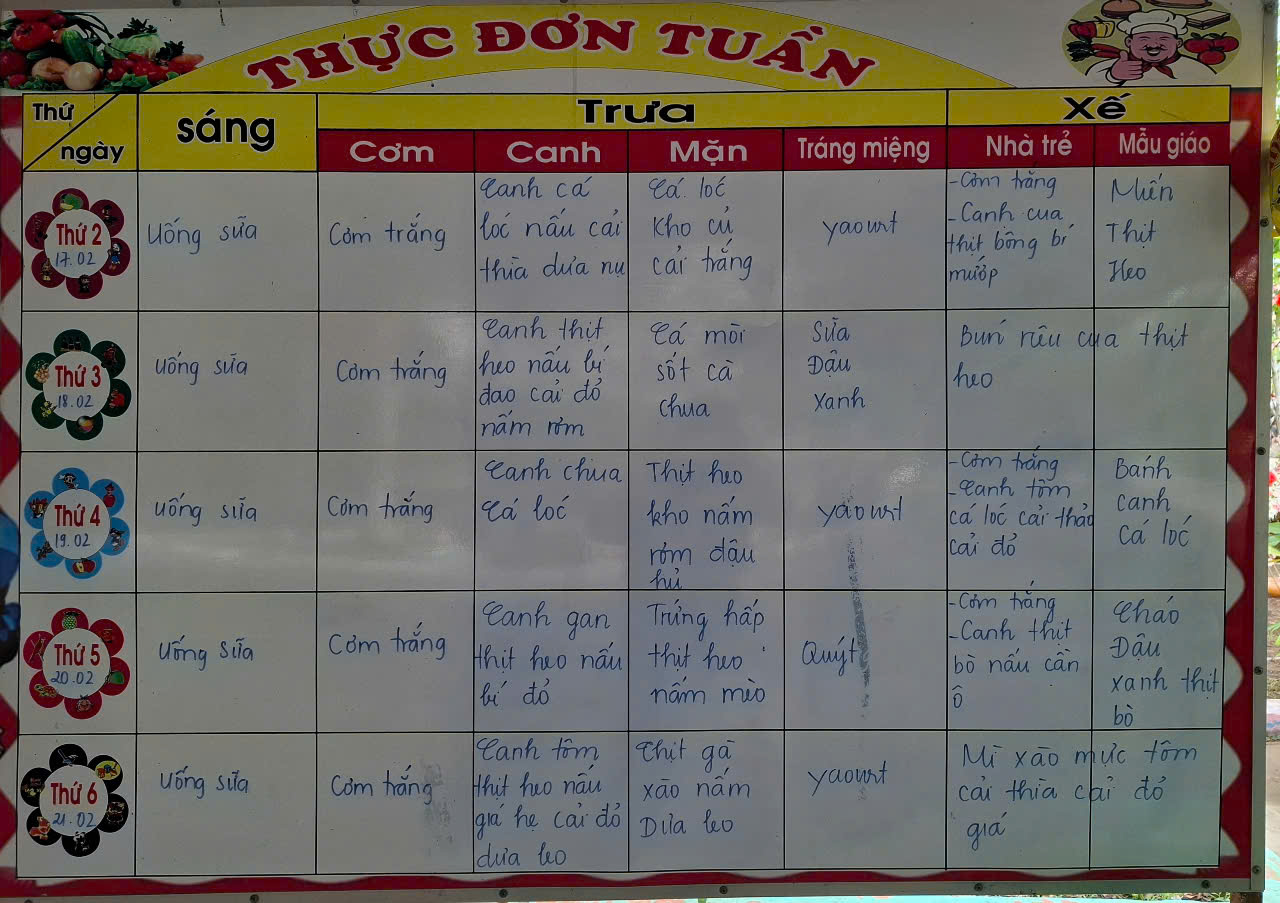 THỰC ĐƠN TUẦN
Thứ
ngày
sáng
Trưa
Xế
Cơm
Canh
Mặn
Tráng miệng
Nhà trẻ
Mẫu giáo
Thứ 2
17.02
Uống sữa
Cơm trắng
Canh cá
lóc nấu cải
thìa dưa nụ
Cá lóc
Kho củ
cải trắng
yaourt
-Cơm trắng
-Canh cua
thịt bông bí
mướp
Miến
Thịt
Heo
Thứ 3
18.02
Uống sữa
Cơm trắng
Canh thịt
heo nấu bí
đao cải đỏ
nấm rơm
Cá mòi
sốt cà
chua
Sữa
Đậu
xanh
Bún riêu cua thịt
heo
Thứ 4
19.02
Uống sữa
Cơm trắng
Canh chua
Cá lóc
Thịt heo
kho nấm
rơm đậu
hủ
yaourt
-Cơm trắng
-Canh tôm
cá lóc cải thảo
cải đỏ
Bánh
canh
Cá lóc
Thứ 5
20.02
Uống sữa
Cơm trắng
Canh gan
thịt heo nấu
bí đỏ
Trứng hấp
thịt heo
nấm mèo
Quýt
-Cơm trắng
-Canh thịt
bò nấu cần
ô
Cháo
Đậu
xanh thịt
bò
Thứ 6
21.02
Uống sữa
Cơm trắng
Canh tôm
thịt heo nấu
giá hẹ cải đỏ
dưa leo
Thịt gà
xào nấm
Dưa leo
yaourt
Mì xào mực tôm
cải thìa cải đỏ
giá